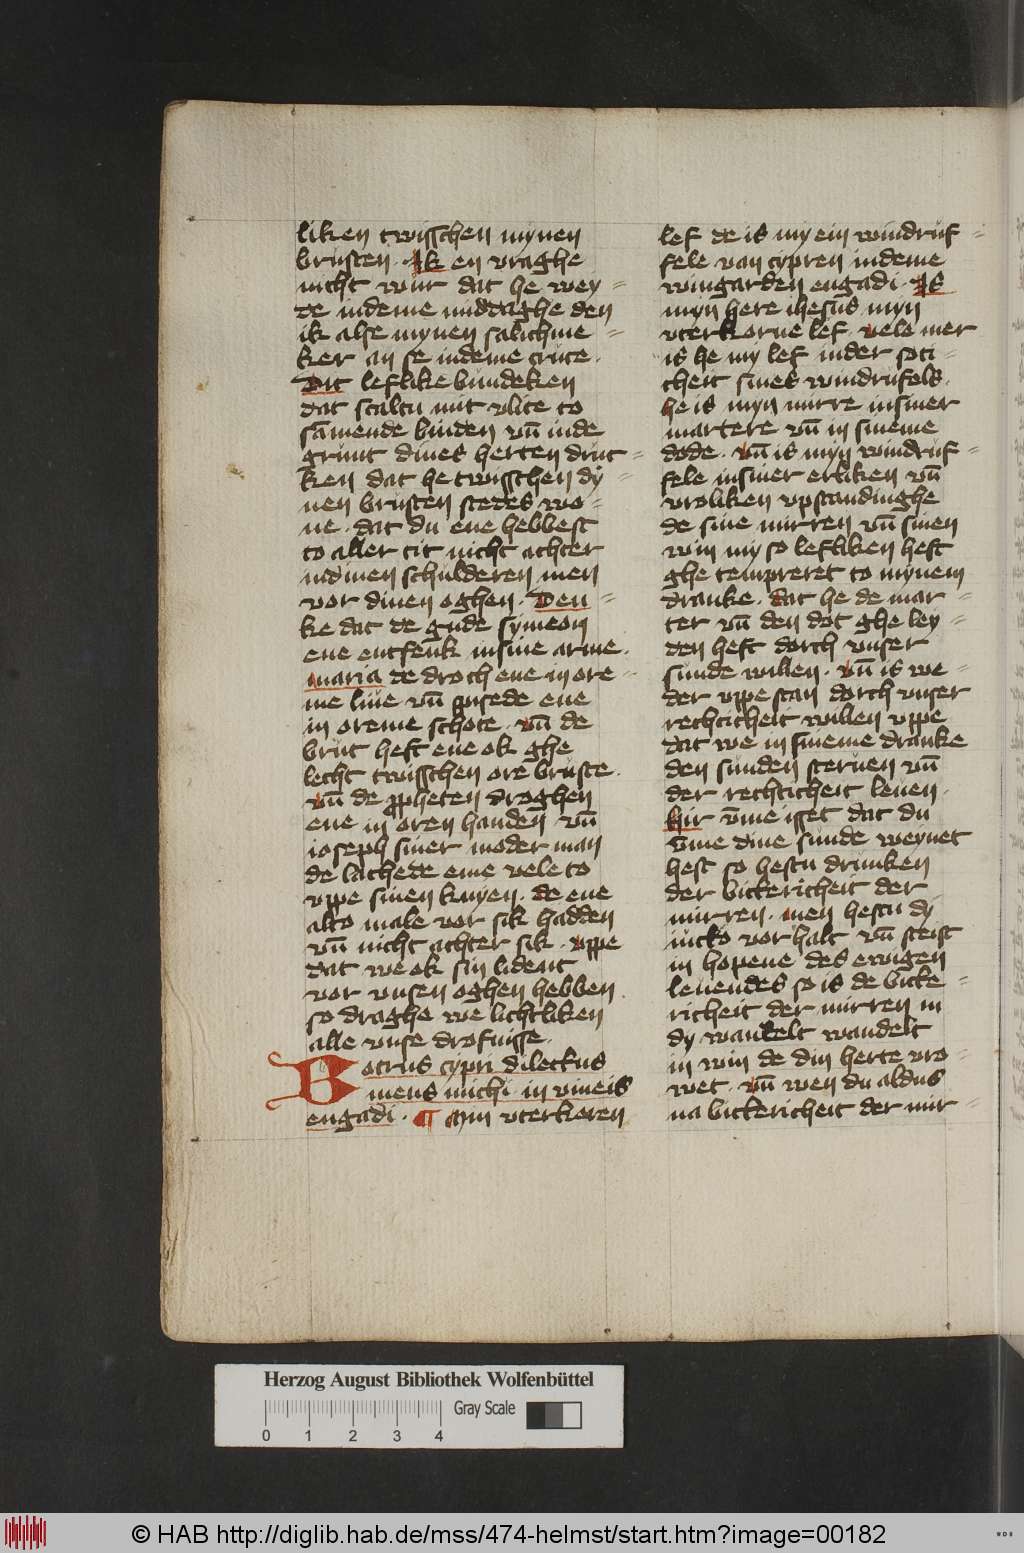 liken twisschen mynen
brusten · Ik en vraghe
nicht wur dat he wey⸗
de indeme middaghe den
ik alse mynen salichme⸗
ker an se indeme cruce ·
Dit leflike bundeken
dat scaltu mit vlite to
sāmende binden vn̄ inde
grunt dines herten druc⸗
ken dat he twisschen dy⸗
nen brusten stedes wo⸗
ne · dat du ene hebbest
to aller tit nicht achter
indinen schulderen men
vor dinen oghen · Den⸗
ke dat de gude symeon
ene entfenk insine arme ·
maria de droch ene in ore⸗
me liue vn̄ prisede ene
in oreme schote · vn̄ de
brut heft ene ok ghe
lecht twisschen ore bruste ·
vn̄ de ppheten droghen
ene in oren handen vn̄
ioseph siner moder man
de lachede eme vele to
vppe sinen knyen · de ene
alto male vor sik hadden
vn̄ nicht achter sik · vppe
dat we ok sin lident
vor vnsen oghen hebben ·
so draghe we lichtliken
alle vnse drofnisse ·
Botrus cypri dilectus
meus michi · in vineis
engadi · ¶ Myn vterkoren
lef de is my ein windruf⸗
fele van cypren indeme
wingarden engadi · Is
myn here ihesus myn
vterkorne lef vele mer
is he my lef inder soti⸗
cheit sines windrufels ·
he is myn mirre insiner
martere vn̄ in sineme
dode · vn̄ is myn windruf⸗
fele insiner erliken vn̄
vroliken vpstandinghe
de sine mirren vn̄ sinen
win my so lefliken heft
ghe tempreret to mynem
dranke · dat he de mar⸗
ter vn̄ den dot ghe ley⸗
den heft dorch vnser
sunde willen · vn̄ is we⸗
der vppe stan dorch vnser
rechticheit willen vppe
dat we in sineme dranke
den sunden steruen vn̄
der rechticheit leuen ·
hir v̄me isset dat du
v̄me dine sunde weynet
hest so hestu drunken
der bickericheit der
mirren · men hestu dy
nicko vor halt vn̄ steist
in hopene des ewigen
leuendes so is de bicke⸗
richeit der mirren in
dy wankelt wandelt
in win de din herte vro⸗
wet · vn̄ wen du aldus
na bickericheit der mir⸗
Herzog August Bibliothek Wolfenbüttel
Gray Scale
0 1 2 3 4
© HAB http://diglib.hab.de/mss/474-helmst/start.htm?image=00182
WDB